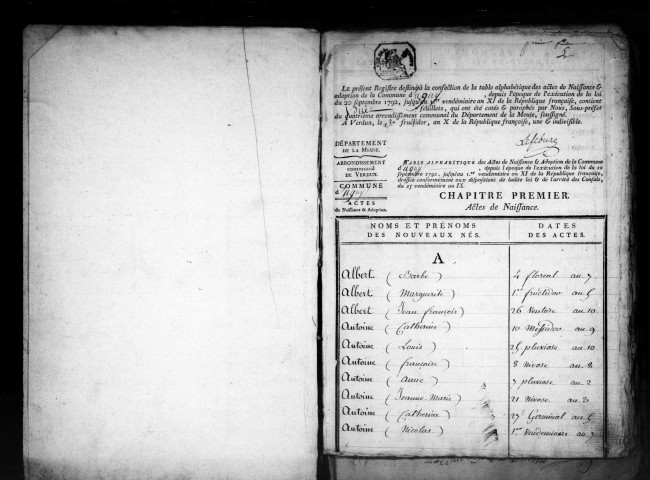 Le présent Registre destiné à la confection de la table alphabétique des actes de Naissance &
adoption de la Commune d depuis l'époque de l'exécution de la loi
du 20 septembre 1792, jusqu'au 1.er vendémiaire an XI de la République française, contient
feuillets, qui ont été cotés & paraphés par Nous, Sous-préfet
du quatrieme arrondissement communal du Département de la Meuse, soussigné.
A Verdun, le fructidor, an X de la République française, une & indivisible.
Lefebure
DÉPARTEMENT
DE LA MEUSE.
ARRONDISSEMENT
communal
DE VERDUN.
COMMUNE
ACTES
de Naissance & Adoption.
TABLE ALPHABÉTIQUE des Actes de Naissance & Adoption de la Commune
d , depuis l'époque de l'exécution de la loi du 20
septembre 1792, jusqu'au 1.er vendémiaire an XI de la République française,
dressée conformément aux dispositions de ladite loi & de l'arrêté des Consuls,
du 25 vendémiaire an IX.
CHAPITRE PREMIER.
Actes de Naissance.
NOMS ET PRÉNOMS
DES NOUVEAUX NÉS.
DATES
DES ACTES.
A
Albert ( Barbe ) 4 floreal an 7
Albert ( Marguerite ) 1er fructidor an 5
Albert ( Jean françois ) 26 Ventose an 10
Antoine ( Catherine ) 10 Messidor an 9
Antoine ( Louis ) 25 pluviose an 10
Antoine ( françoise ) 8 Nivose an 8
Antoine ( anne ) 7 pluviose an 2
Antoine ( Jeanne Marie ) 21 Nivose an 3
Antoine ( Catherine ) 27 Germinal an 5
Antoine ( Nicolas ) 1er Vendemiaire an 7